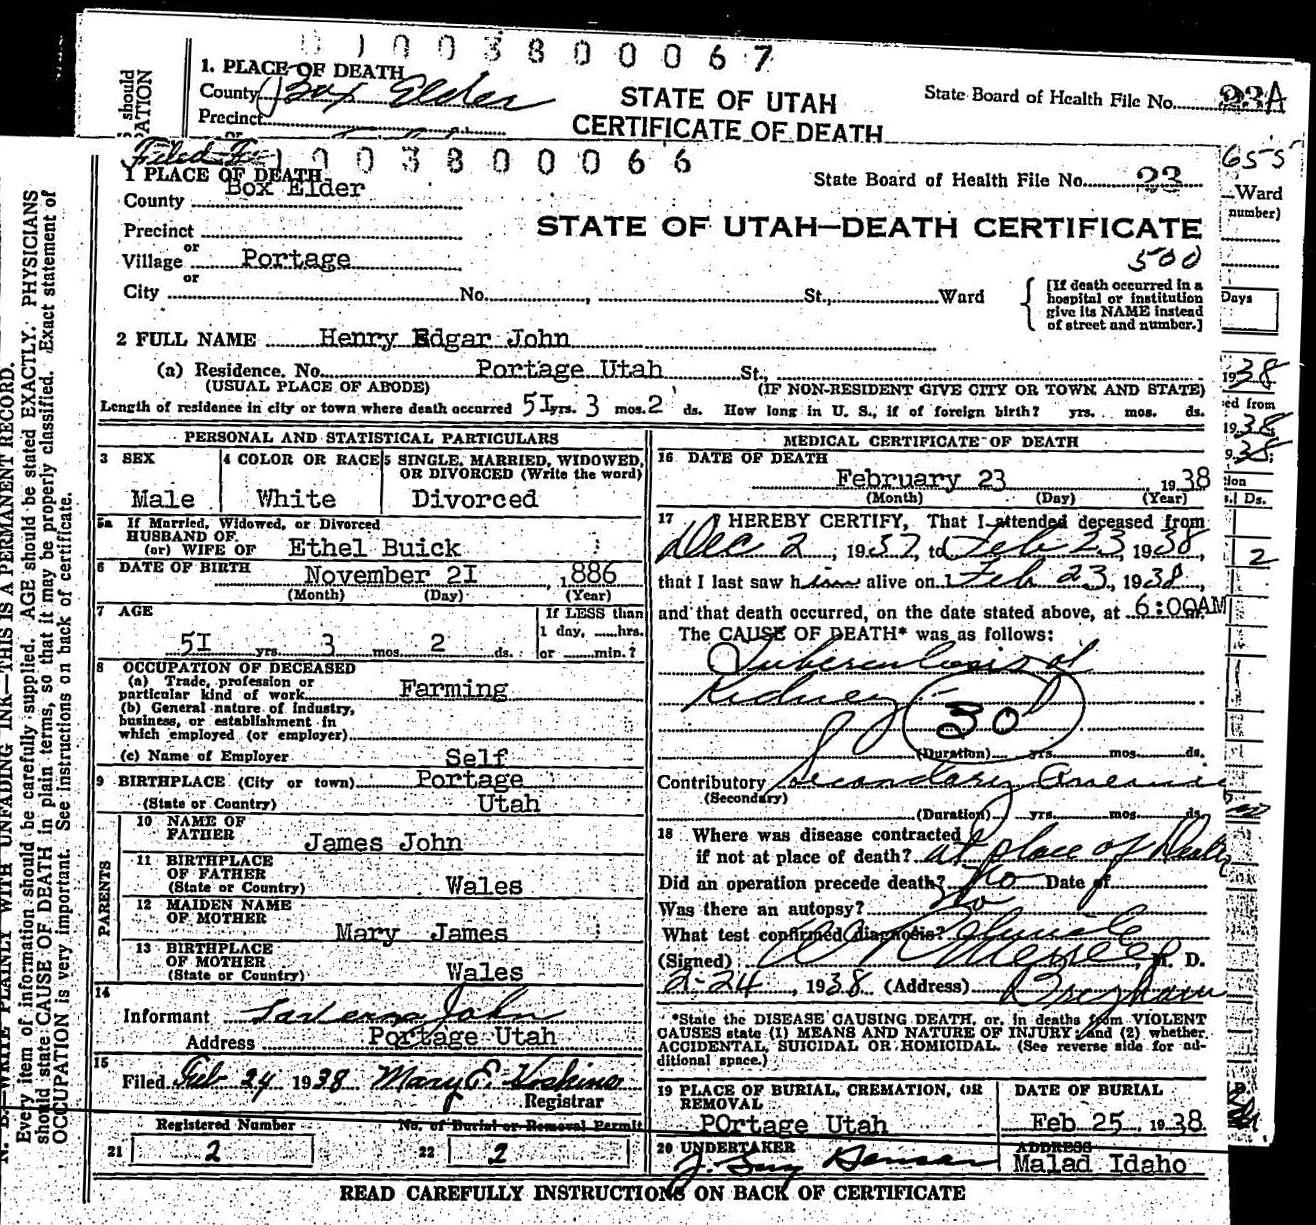 0 1 0 0 3 8 0 0 0 6 7
1. PLACE OF DEATH
County Box Elder
Precinct
STATE OF UTAH
CERTIFICATE OF DEATH
State Board of Health File No. 23A
should
Filed
1 0 0 3 8 0 0 0 6 6
1 PLACE OF DEATH
County Box Elder
State Board of Health File No. 23
Precinct
STATE OF UTAH—DEATH CERTIFICATE
500
or
Village Portage
or
City No. , St., Ward
[If death occurred in a
hospital or institution
give its NAME instead
of street and number.]
2 FULL NAME Henry Edgar John
(a) Residence. No. Portage Utah St.,
(USUAL PLACE OF ABODE) (IF NON-RESIDENT GIVE CITY OR TOWN AND STATE)
Length of residence in city or town where death occurred 5I yrs. 3 mos. 2 ds. How long in U. S., if of foreign birth? yrs. mos. ds.
PERSONAL AND STATISTICAL PARTICULARS
3 SEX
Male
4 COLOR OR RACE
White
5 SINGLE, MARRIED, WIDOWED,
OR DIVORCED (Write the word)
Divorced
5a If Married, Widowed, or Divorced
HUSBAND OF
(or) WIFE OF Ethel Buick
6 DATE OF BIRTH November 2I , 1886
(Month) (Day) (Year)
7 AGE
5I yrs. 3 mos. 2 ds.
If LESS than
1 day, ......hrs.
or ......min.?
8 OCCUPATION OF DECEASED
(a) Trade, profession or
particular kind of work Farming
(b) General nature of industry,
business, or establishment in
which employed (or employer)
(c) Name of Employer Self
9 BIRTHPLACE (City or town) Portage
(State or Country) Utah
PARENTS
10 NAME OF
FATHER
James John
11 BIRTHPLACE
OF FATHER
(State or Country) Wales
12 MAIDEN NAME
OF MOTHER
Mary James
13 BIRTHPLACE
OF MOTHER
(State or Country) Wales
14
Informant John
Address Portage Utah
15
Filed Feb 24 1938 Mary E Hoskins
Registrar
Registered Number
21 2
No. of Burial or Removal Permit
22 2
MEDICAL CERTIFICATE OF DEATH
16 DATE OF DEATH
February 23 , 1938
(Month) (Day) (Year)
17 I HEREBY CERTIFY, That I attended deceased from
Dec 2 , 1937, to Feb 23, 1938,
that I last saw him alive on Feb 23, 1938,
and that death occurred, on the date stated above, at 6:00AM
The CAUSE OF DEATH* was as follows:
Tuberculosis of
Kidney
30
(Duration) yrs. mos. ds.
Contributory Secondary Anemia
(Secondary)
(Duration) yrs. mos. ds.
18 Where was disease contracted
if not at place of death? at place of Death
Did an operation precede death? No Date of
Was there an autopsy? No
What test confirmed diagnosis? Clinical
(Signed) , M. D.
2-24 , 1938 (Address) Brigham
*State the DISEASE CAUSING DEATH, or, in deaths from VIOLENT
CAUSES state (1) MEANS AND NATURE OF INJURY; and (2) whether
ACCIDENTAL, SUICIDAL OR HOMICIDAL. (See reverse side for ad-
ditional space.)
19 PLACE OF BURIAL, CREMATION, OR
REMOVAL
POrtage Utah
DATE OF BURIAL
Feb 25 , 1938
20 UNDERTAKER
ADDRESS
Malad Idaho
READ CAREFULLY INSTRUCTIONS ON BACK OF CERTIFICATE
N. B.—WRITE PLAINLY WITH UNFADING INK—THIS IS A PERMANENT RECORD.
Every item of information should be carefully supplied. AGE should be stated EXACTLY. PHYSICIANS
should state CAUSE OF DEATH in plain terms, so that it may be properly classified. Exact statement of
OCCUPATION is very important. See instructions on back of certificate.
655
Ward
number)
Days
1938
ed from
1938
38,
Ds.
2